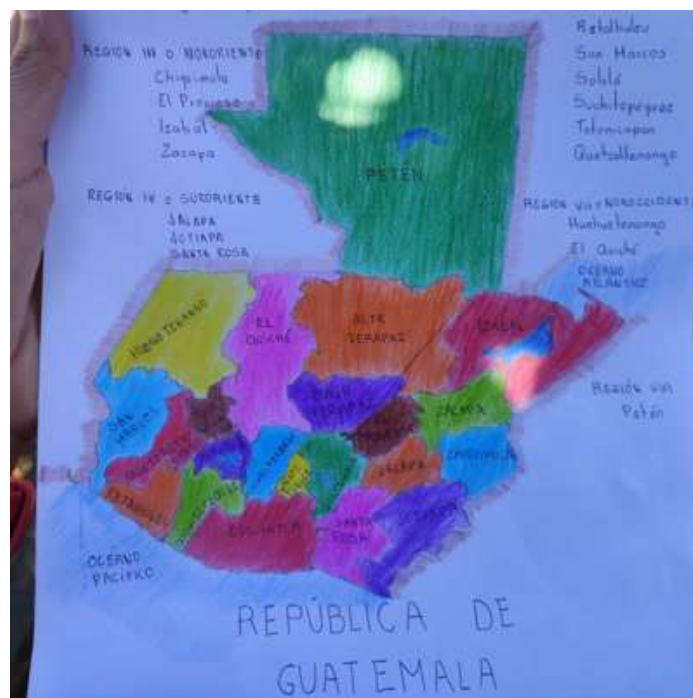 REGIÓN III O NORORIENTE
Chiquimula
El Progreso
Izabál
Zacapa
REGIÓN IV O SURORIENTE
JALAPA
JUTIAPA
SANTA ROSA
Retalhuleu
San Marcos
Sololá
Suchitepéquez
Totonicapan
Quetzaltenango
REGIÓN VII O NOROCCIDENTE
Huehuetenango
El Quiché
OCEANO
ATLÁNTICO
REGIÓN VIII
Petén
PETÉN
EL
QUICHÉ
ALTA
VERAPAZ
IZABAL
BAJA
VERAPAZ
SAN
MARCOS
ZACAPA
CHIQUIMULA
JALAPA
ESCUINTLA
SANTA
ROSA
JUTIAPA
OCEANO
PACÍFICO
REPÚBLICA DE
GUATEMALA